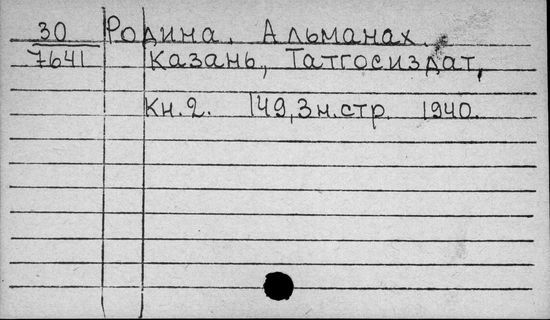 30 Родина. Альманах.
7641 Казань, Татгосиздат,
Кн.2. 149,3н.стр. 1940.